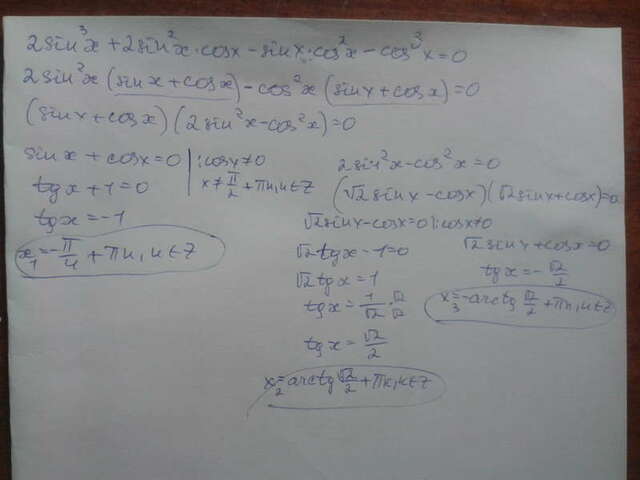 2sin³x+2sin²x·cosx-sinx·cos²x-cos³x=0
2sin²x(sinx+cosx)-cos²x(sinx+cosx)=0
(sinx+cosx)(2sin²x-cos²x)=0
sinx+cosx=0 | :cosx≠0
x≠π/2+πn, n∈Z
tgx+1=0
tgx=-1
x₁=-π/4+πn, n∈Z
2sin²x-cos²x=0
(√2sinx-cosx)(√2sinx+cosx)=0
√2sinx-cosx=0 |:cosx≠0
√2tgx-1=0
√2tgx=1
tgx=1/√2·√2/√2
tgx=√2/2
x₂=arctg√2/2+πn, n∈Z
√2sinx+cosx=0
tgx=-√2/2
x₃=-arctg√2/2+πn, n∈Z